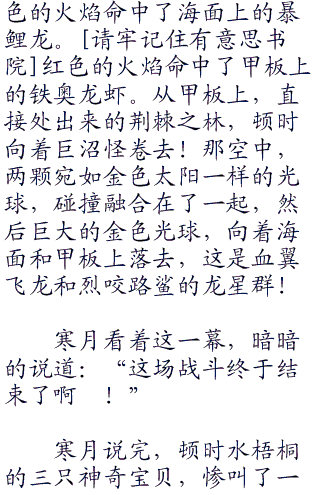 色的火焰命中了海面上的暴
鲤龙。[请牢记住有意思书
院]红色的火焰命中了甲板上
的铁奥龙虾。从甲板上，直
接处出来的荆棘之林，顿时
向着巨沼怪卷去！那空中，
两颗宛如金色太阳一样的光
球，碰撞融合在了一起，然
后巨大的金色光球，向着海
面和甲板上落去，这是血翼
飞龙和烈咬路鲨的龙星群！
寒月看着这一幕，暗暗
的说道：“这场战斗终于结
束了啊　！”
寒月说完，顿时水梧桐
的三只神奇宝贝，惨叫了一